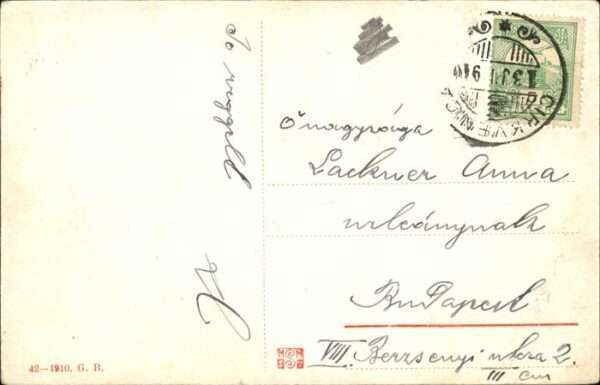 Jó reggelt
Őnagysága
Lackner Anna
urleánynak
Budapest
VIII Berzsenyi utca 2.
III em
CIRKVENICA
42—1910. G. B.